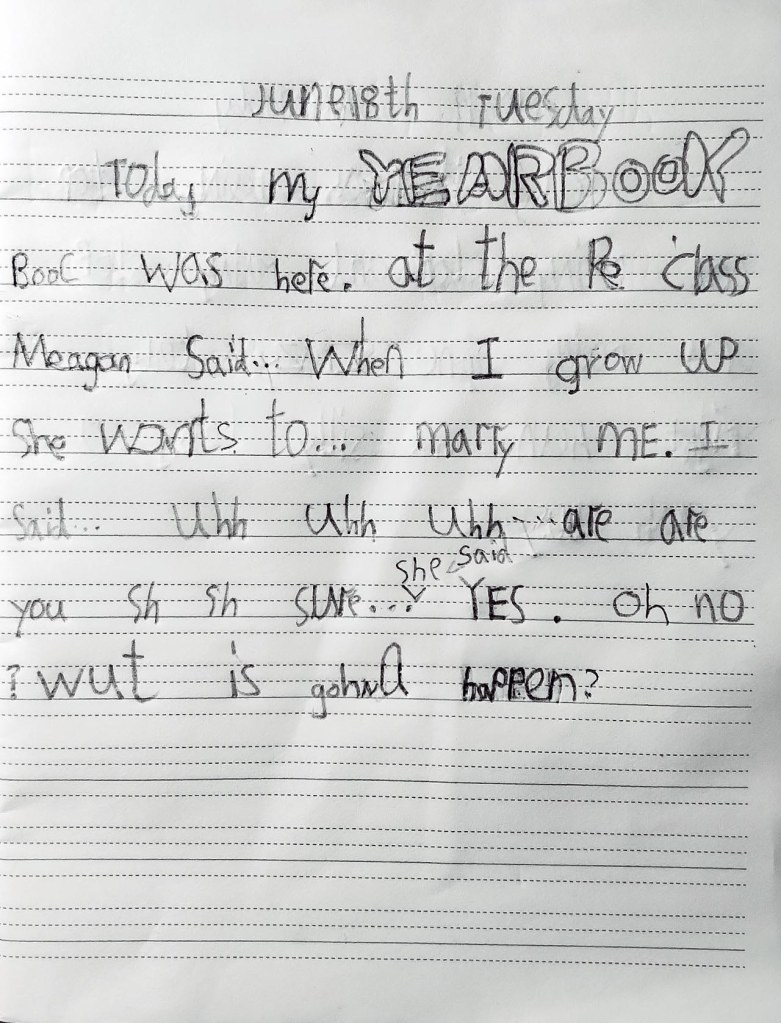 June 18th Tuesday
Today my YEARBOOK
Booc was here. at the Pe class
Meagan Said... When I grow up
She wants to... marry ME. I
Said... Uhh Uhh Uhh... are are
you sh sh sure... she said YES. Oh no
? wut is gohna happen?